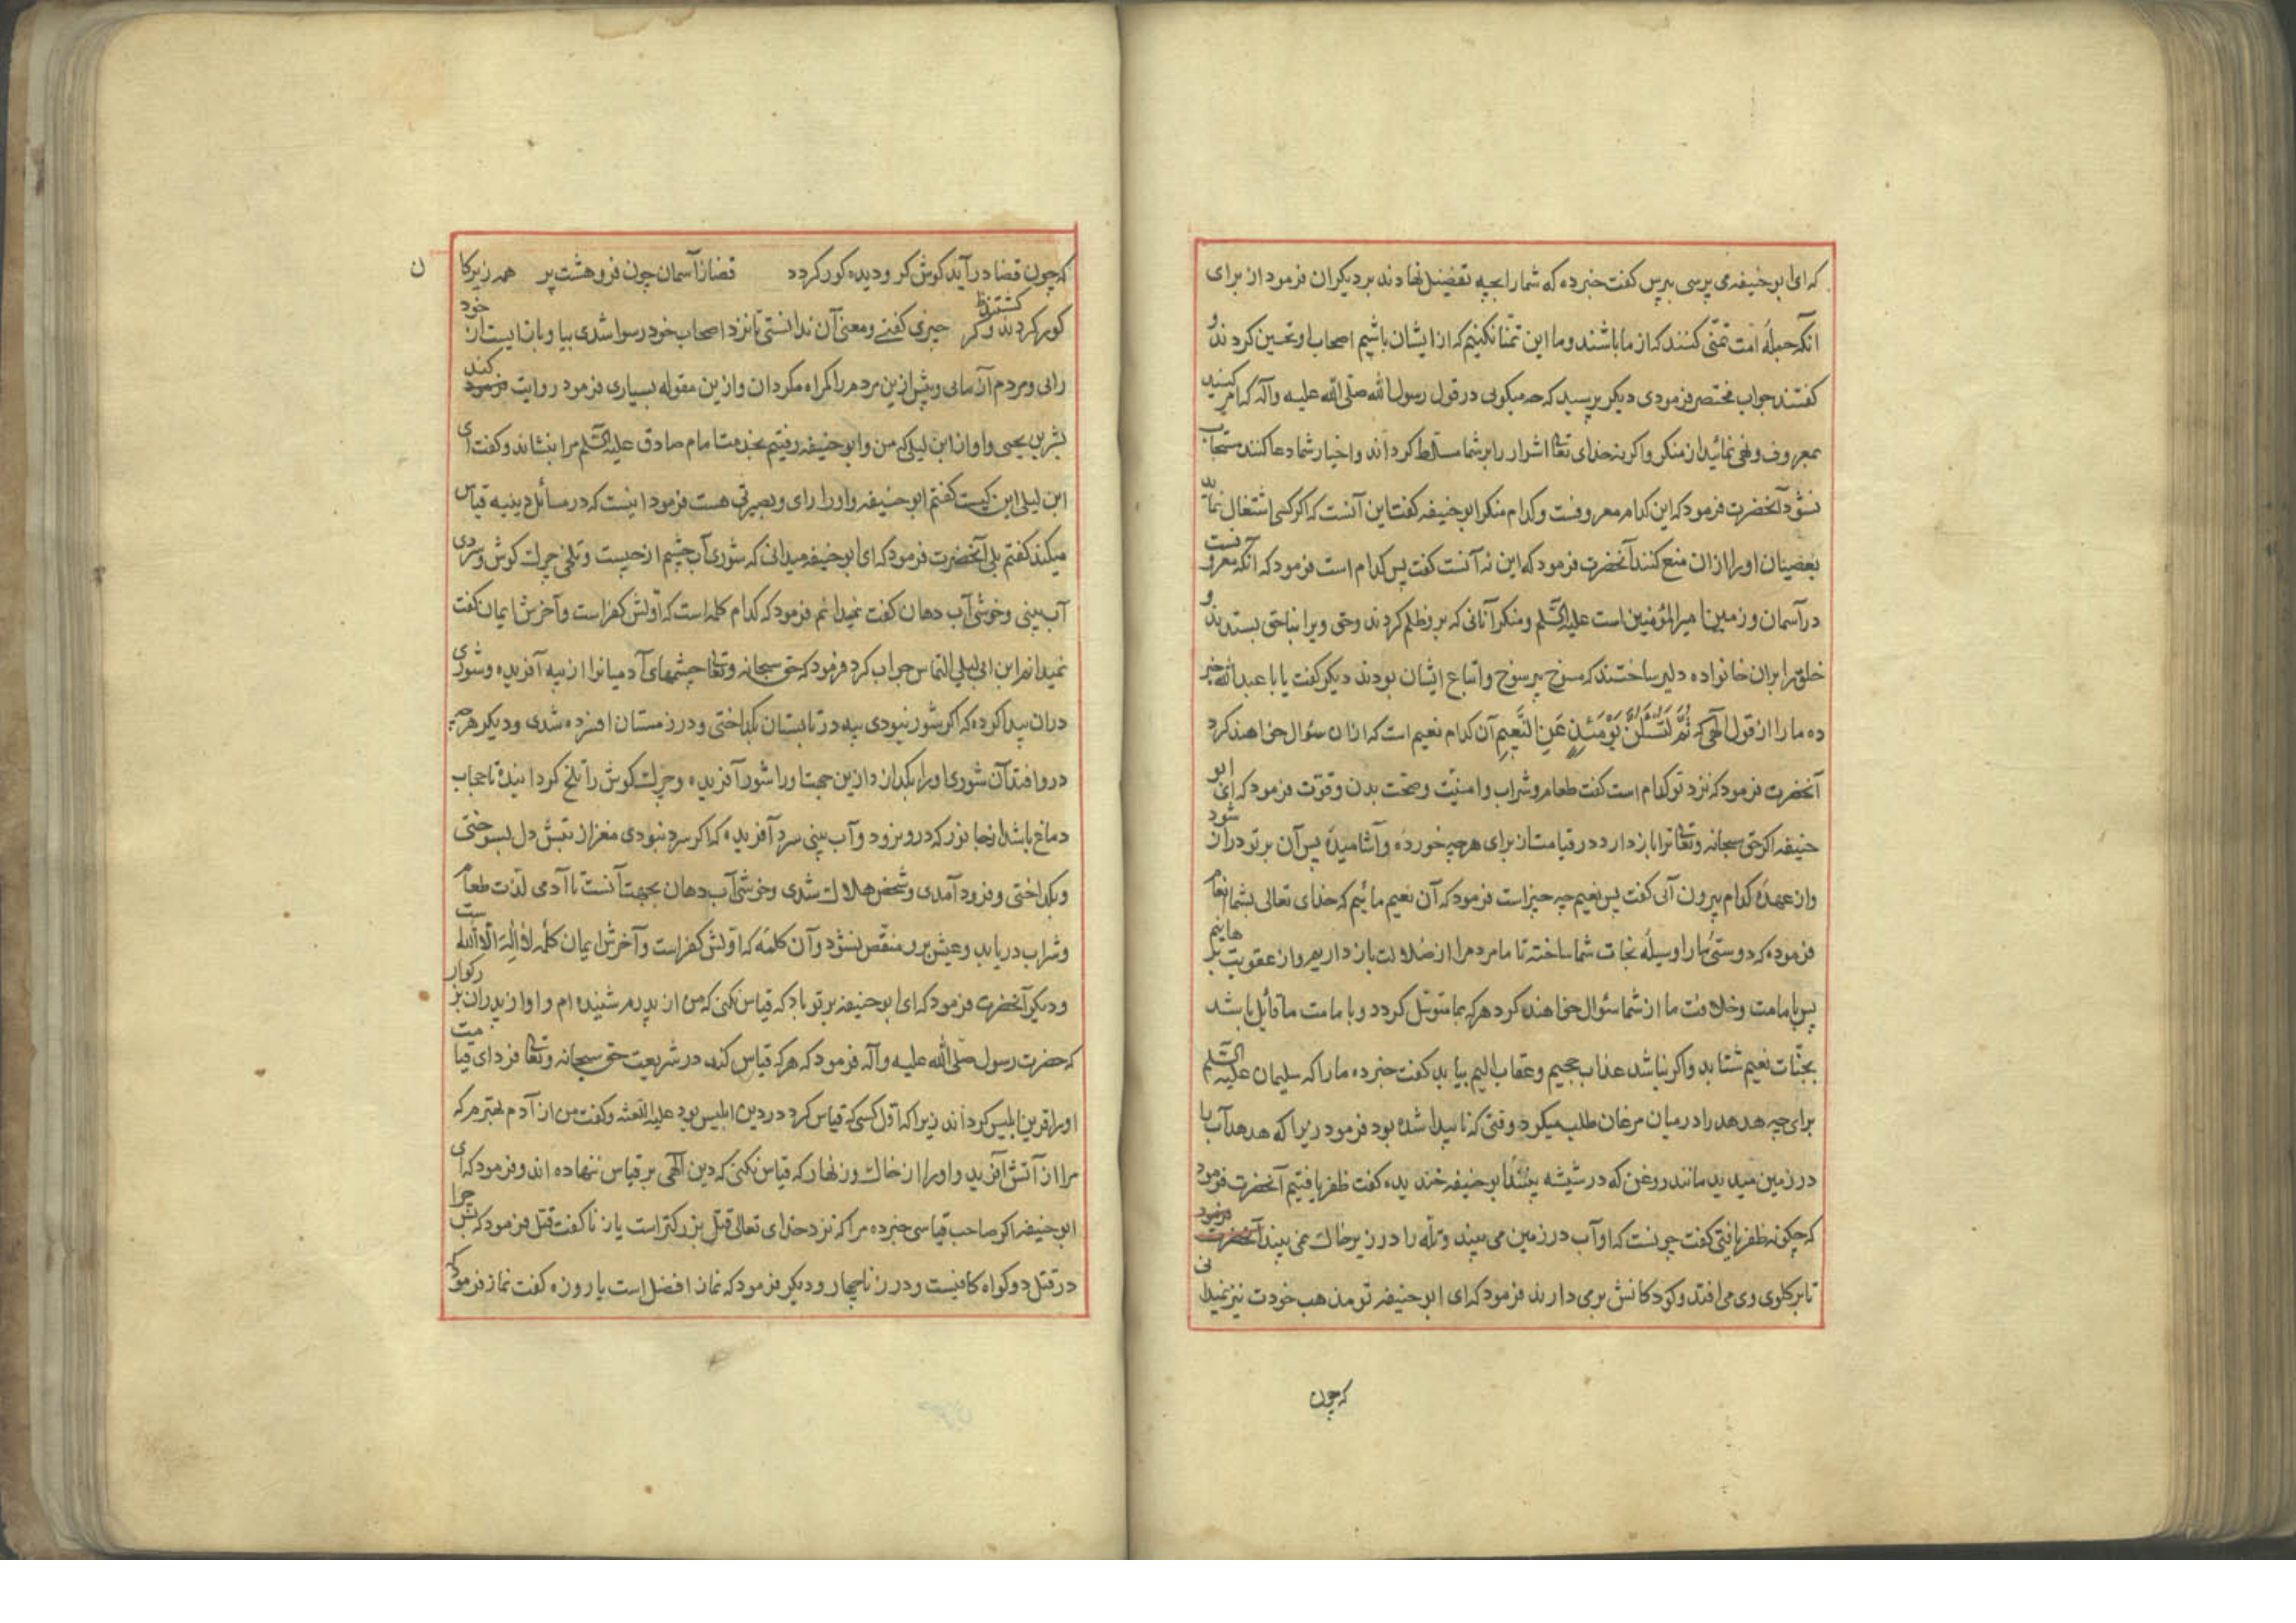 که ای ابو حنیفه می پرسی بپرس گفت خبر ده که شما را بچه تفضیل نهادند بر دیکران فرمود از برای
آنکه جمله امت تمنی کنند که از ما باشند و ما این تمنا نکنیم که از ایشان باشیم اصحاب او تحسین کردند و
کفتند جواب مختصر فرمودی دیکر پرسید که چه میکویی در قول رسول الله صلی الله علیه وآله که امر کنید
بمعروف و نهی نمائید از منکر و اکر نه خدای تعالی اشرار را بر شما مسلط کرداند و اخیار شما دعا کنند مستجاب
نشود آنحضرت فرمود که این کدام معروفست و کدام منکر ابو حنیفه کفت این آنست که اکر کسی اشتغال نماید
بعصیان او را از ان منع کنند آنحضرت فرمود که این نه آنست کفت پس کدام است فرمود که آنکه معروفست
در آسمان و زمین امیر المؤمنین است علیه السلم و منکر آنانی که برو ظلم کردند و حق ویرا بناحق بستدند و
خلق را بران خانواده دلیر ساختند که و اتباع ایشان بودند دیکر کفت یا با عبد الله خبر
ده ما را از قول الهی که ثُمَّ لَتُسْئَلُنَّ يَوْمَئِذٍ عَنِ النَّعِيمِ آن کدام نعیم است که از ان سؤال خواهند کرد
آنحضرت فرمود که نزد تو کدام است کفت طعام و شراب و امنیت و صحت بدن و قوت فرمود که ای ابو
حنیفه اکر حق سبحانه وتعالی ترا باز دارد در قیامت از برای هرچه خورده و آشامیده پس آن بر تو دراز شود
و از عهده کدام بیرون آئی کفت پس نعیم چه چیز است فرمود که آن نعیم مائیم که خدای تعالی بشما انعام
فرموده که دوستی ما را وسیله نجات شما ساخته تا ما مردم را از ضلالت باز داریم و از عقوبت برهانیم
پس بامامت و خلافت ما از شما سؤال خواهند کرد هر که بما متوسل کردد و با مامت ما قائل باشد
بجنات نعیم شتابد و اکر نباشد عذاب جحیم و عقاب الیم بیابد کفت خبر ده ما را که سلیمان علیه السلم
برای چه هدهد را در میان مرغان طلب میکرد وقتی که ناپیدا شده بود فرمود زیرا که هدهد آب را
در زمین میدید مانند روغن که در شیشه بینند ابو حنیفه خندیده کفت ظفر یافتیم آنحضرت فرمود
که چکونه ظفر یافتی کفت چونست که او آب در زمین می بیند و تله را در زیر خاک نمی بیند آنحضرت فرمود
تا بر کلوی وی می افتد و کودکانش بر می دارند فرمود که ای ابو حنیفه تو مذهب خودت نیز نمیدانی
که چون
که چون قضا در آید کوش کر و دیده کور کردد قضا ز آسمان چون فروهشت پر همه زیرکان
کور کردند و کر کشتند ظ چیزی کفتی و معنی آن ندانستی تا نزد اصحاب خود رسوا شدی بیا و باز ایست از خود
رائی و مردم آزمائی و پیش ازین مردم را کمراه مکردان و ازین مقوله بسیاری فرمود روایت فرمود کند
بشر بن یحیی و او از ابن لیلی که من و ابو حنیفه رفتیم بخدمت امام صادق علیه السلم مرا بنشاند و کفت ای
ابن لیلی این کیست کفتم ابو حنیفه و او را رای و بصیرتی هست فرمود اینست که در مسائل دینیه قیاس
میکند کفتم بلی آنحضرت فرمود که ای ابو حنیفه میدانی که شوری آب چشم از چیست و تلخی چرک کوش و سردی
آب بینی و خوشی آب دهان کفت نمیدانم فرمود که کدام کلمه است که اولش کفر است و آخرش ایمان کفت
نمیدانم ابن ابی لیلی التماس جواب کرد فرمود که حق سبحانه وتعالی چشمهای آدمیانرا از پیه آفریده و شوری
دران پیدا کرده که اکر شور نبودی پیه در تابستان بکداختی و در زمستان افسرده شدی و دیکر هرچه
درو افتد آن شوری او را بکدازد ازین جهت او را شور آفریده و چرک کوش را تلخ کردانیده تا حجاب
دماغ باشد از جانور که درو نرود و آب بینی سرد آفریده که اکر سرد نبودی مغز از تبش دل بسوختی
و بکداختی و فرود آمدی و شخص هلاک شدی و خوشی آب دهان بجهت آنست تا آدمی لذت طعام
و شراب دریابد و عیش برو منغص نشود و آن کلمه که اولش کفر است و آخرش ایمان کلمه لا اله الا الله است
و دیکر آنحضرت فرمود که ای ابو حنیفه بر تو باد که قیاس نکنی که من از پدرم شنیده ام و او از پدران بزرکوار
که حضرت رسول صلی الله علیه وآله فرمود که هر که قیاس کند در شریعت حق سبحانه وتعالی فردای قیامت
او را قرین ابلیس کرداند زیرا که اول کسی که قیاس کرد در دین ابلیس بود علیه اللعنه و کفت من از آدم بهترم که
مرا از آتش آفرید و او را از خاک و زنهار که قیاس نکنی که دین الهی بر قیاس ننهاده اند و فرمود که ای
ابو حنیفه اکر صاحب قیاسی خبر ده مرا که نزد خدای تعالی قتل بزرکتر است یا زنا کفت قتل فرمود که پس چرا
در قتل دو کواه کافیست و در زنا چهار و دیکر فرمود که نماز افضل است یا روزه کفت نماز فرمود که